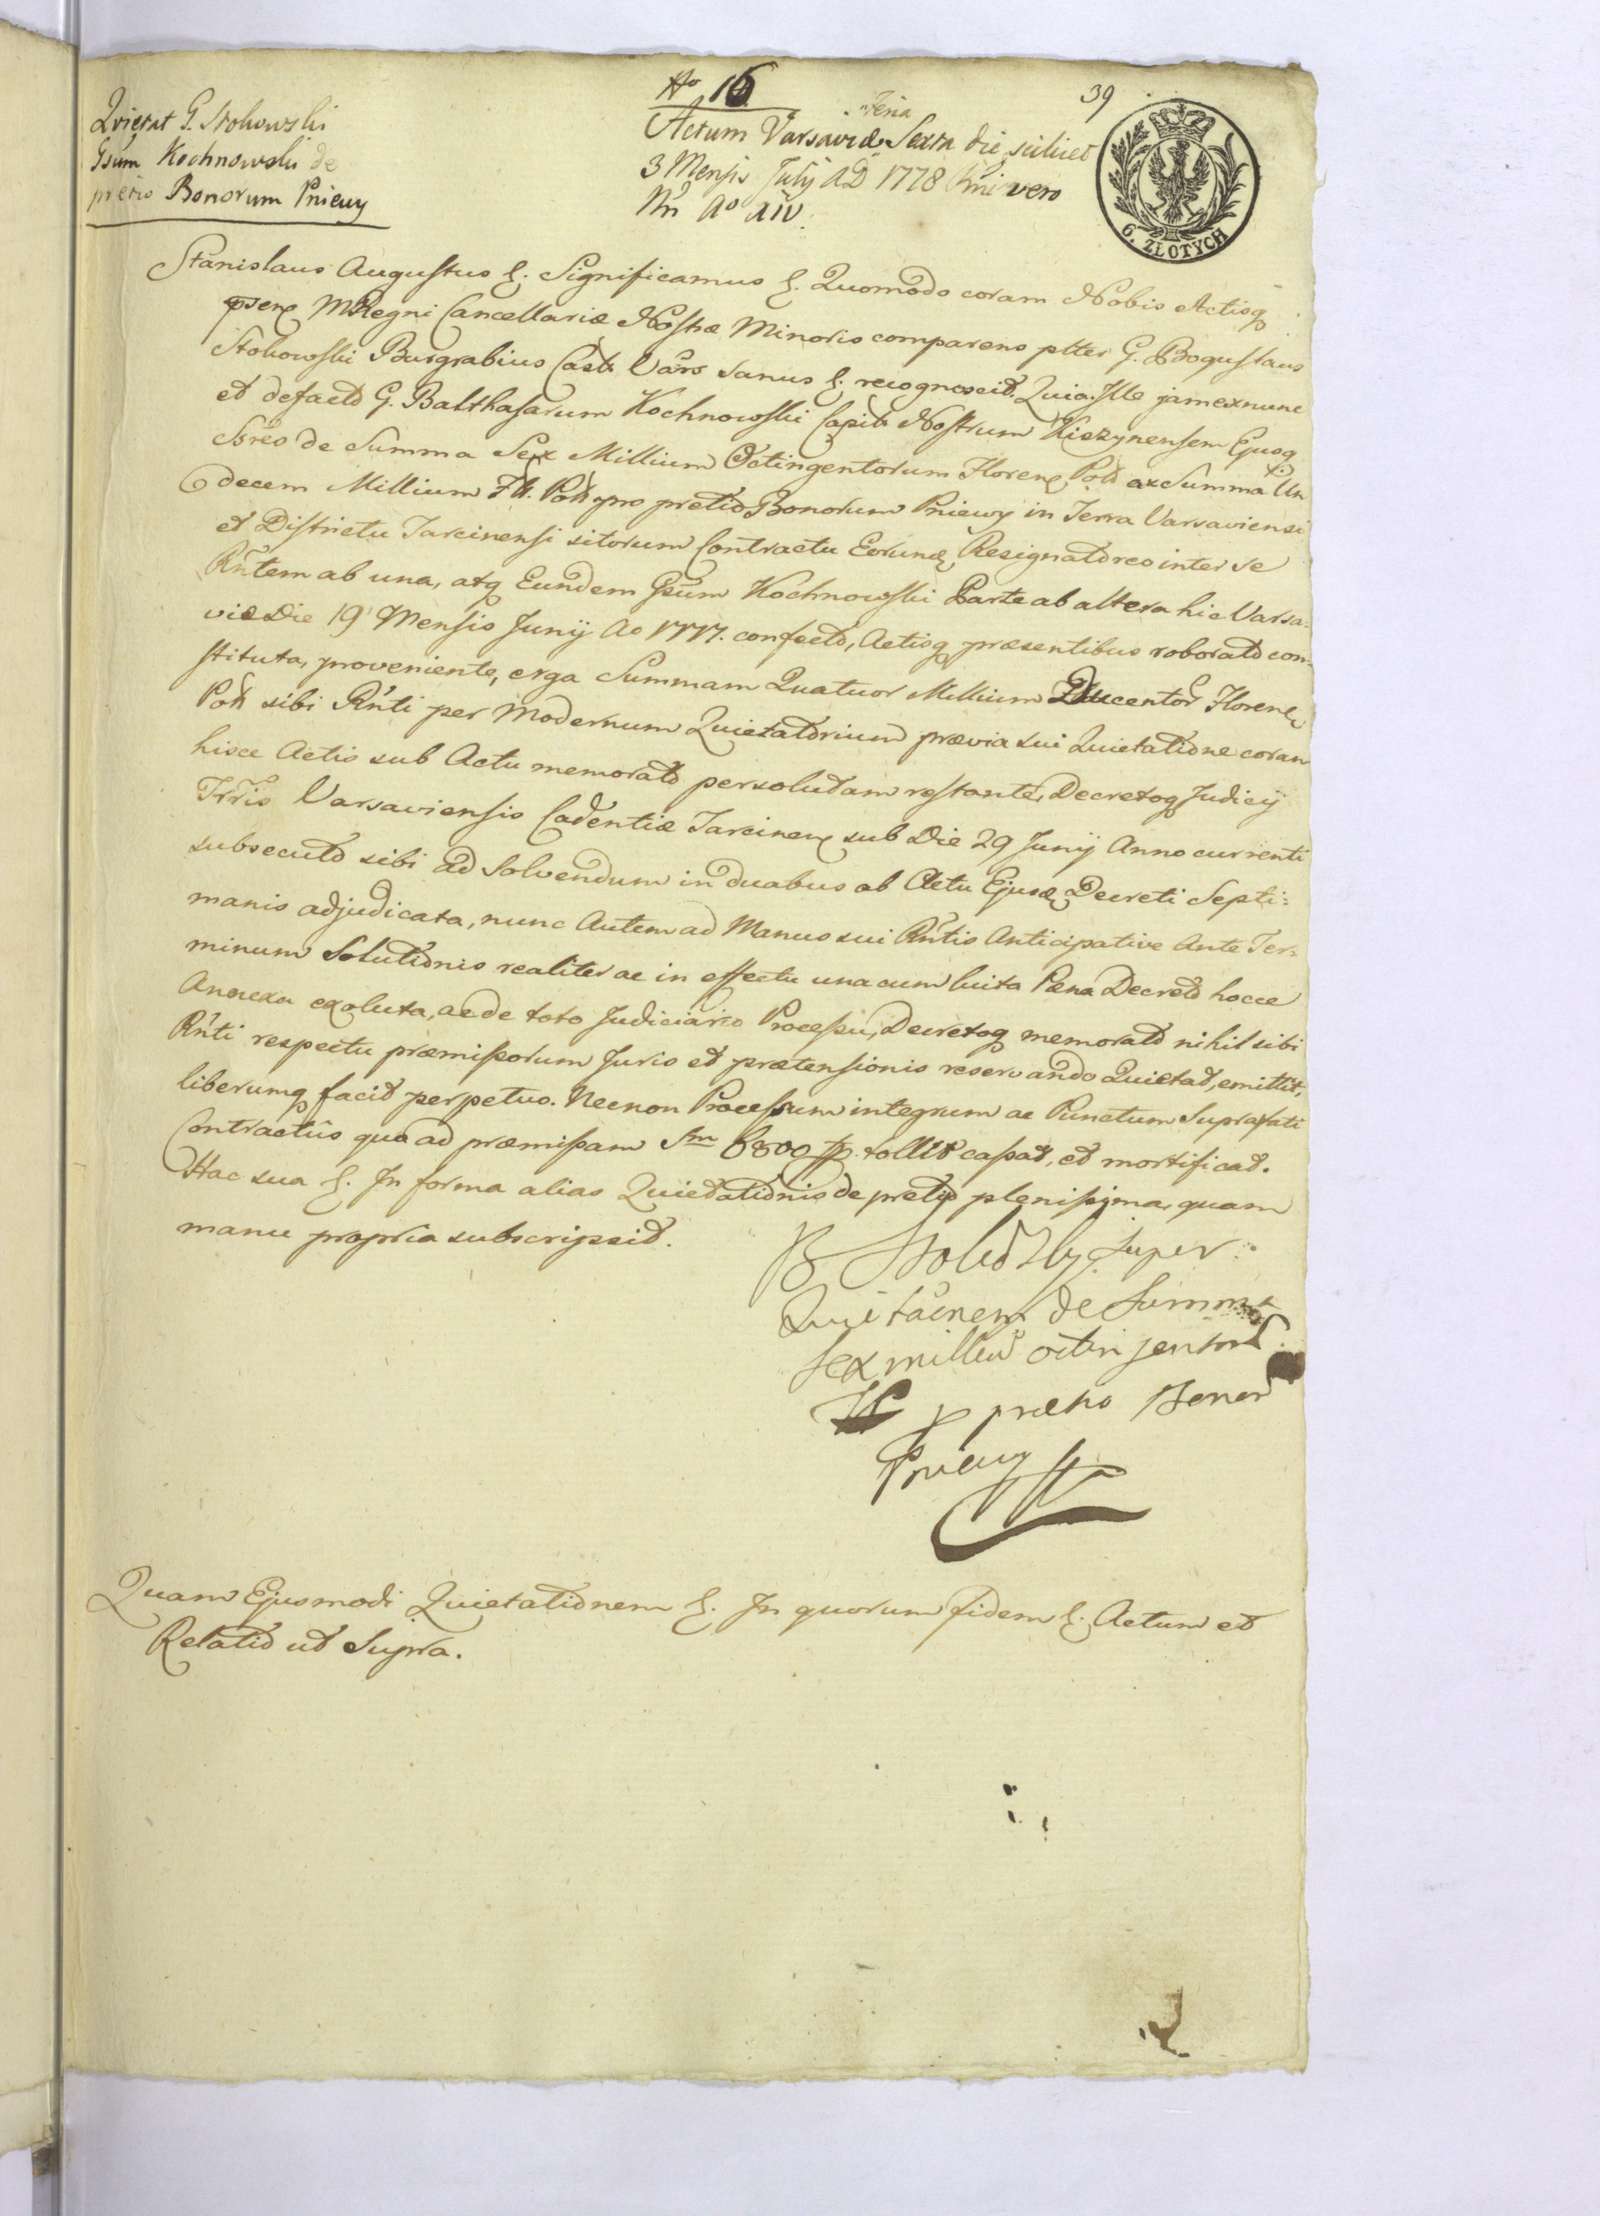 No 16
39
Quietat G. Stokowski
Gsum Kochnowski de
pretio Bonorum Pniewy
Actum Varsaviæ Feria Sexta die scilicet
3 Mensis July AD 1778 Rni vero
Nri Ao XIV.
6. ZŁOTYCH
Stanislaus Augustus &. Significamus &. Quomodo coram Nobis Actisq
psen MRegni Cancellariæ Nostræ Minoris comparens plter G. Boguslaus
Stokowski Burgrabius Castr Vars sanus &. recognoscit. Quia Ille jam ex nunc
et defacto G. Balthasarum Kochnowski Capit Nostrum Kiszynensem Ejusq
Sbres de Summa Sex Millium Octingentorum Floren Pol ex Summa Un
decem Millium Fl. Pol pro pretio Bonorum Pniewy in Terra Varsaviensi
et Districtu Tarcinensi sitorum Contractu Eorund Resignatoreo inter se
Rntem ab una, atq Eundem Gsum Kochnowski Parte ab altera hic Varsa-
viæ Die 19 Mensis Junij Ao 1777. confecto, Actisq præsentibus roborato con-
stituta, proveniente, erga Summam Quatuor Millium Ducentor Floren
Pol sibi Rnti per Modernum Quietatorium prævia sui Quietatione coram
hisce Actis sub Actu memorato persolutam restante, Decretoq Judicij
Trris Varsaviensis Cadentiæ Tarcinen sub Die 29 Junij Anno currenti
subsecuto sibi ad Solvendum in duabus ab Actu Ejusd Decreti Septi-
manis adjudicata, nunc Autem ad Manus sui Rntis Anticipative Ante Ter-
minum Solutionis realiter ac in effectu una cum luita Pæna Decreto hocce
Annexa exoluta, ac de toto Judiciario Processu, Decretoq memorato nihil sibi
Rnti respectu præmissorum Juris et prætensionis reservando Quietat, emittit,
liberumq facit perpetuo. Necnon Processum integrum ac Punctum Suprafati
Contractûs quo ad præmissam Sm 6800 fp. tollit cassat, et mortificat.
Hac sua &. In forma alias Quietationis de pretijs plenissima, quam
manu propria subscripsit.
B Stokowsky super
Quitaonem de Summa
Sex milliu octin gentor
Fl p prætio Bonor
Pniewy
Quam Ejusmodi Quietationem &. In quorum fidem &. Actum et
Relatio ut Supra.